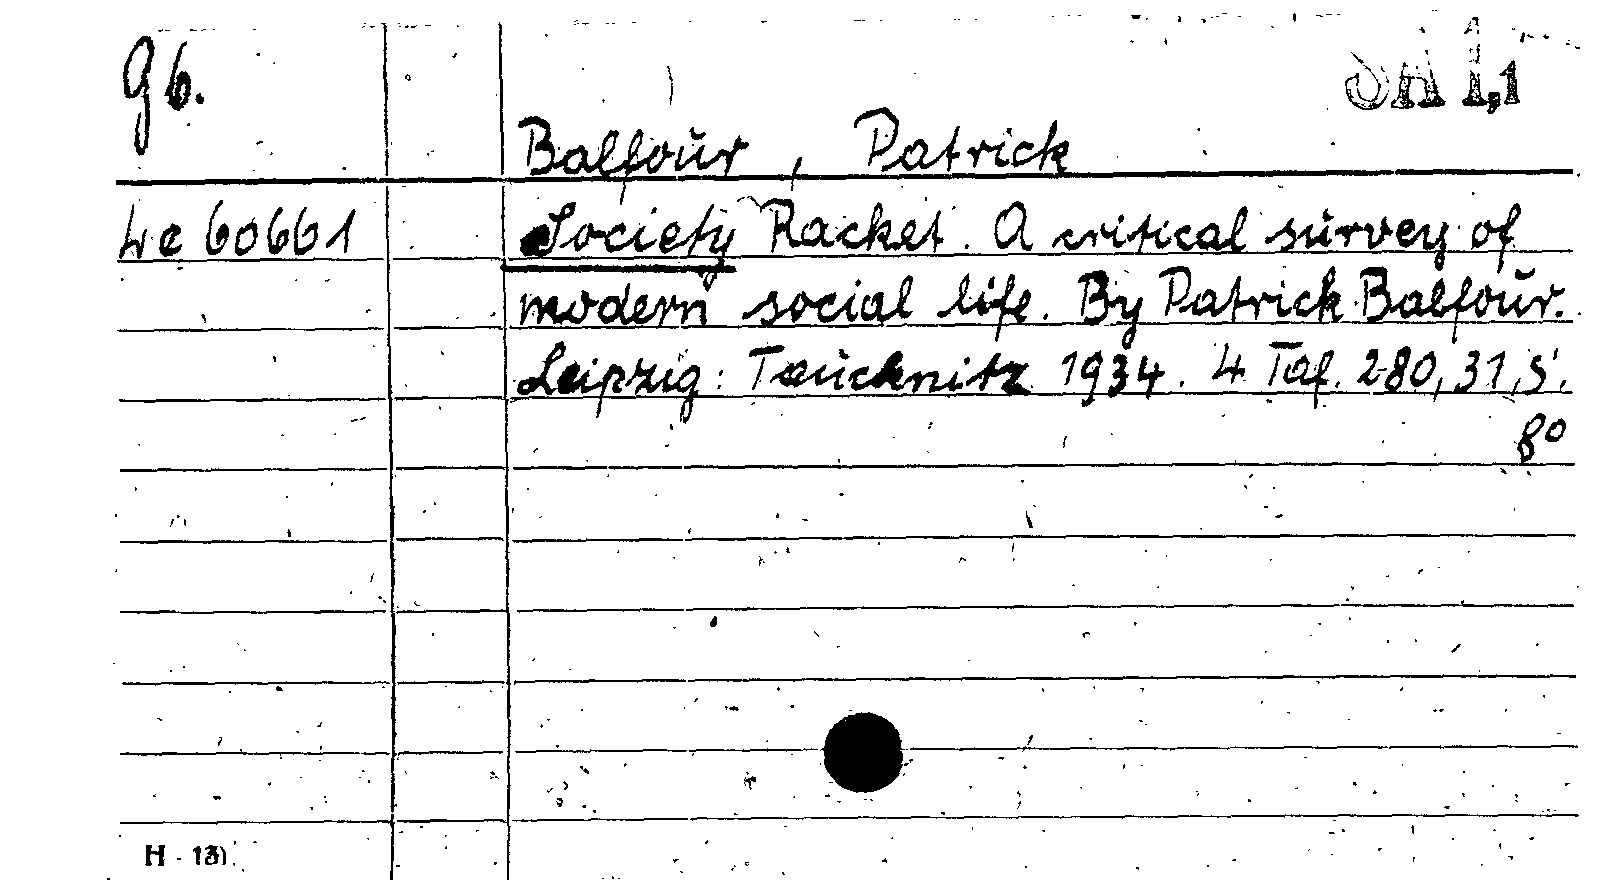 g6.
SA 1,1
Balfour, Patrick
Lc 60661
Society Racket. A critical survey of
modern social life. By Patrick Balfour.
Leipzig: Tauchnitz 1934. 4 Taf. 280, 31, S.
8°
H - 13)